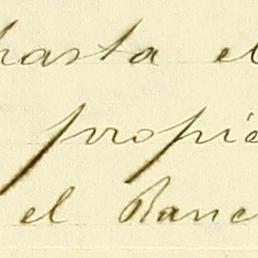 hasta el
propie
el Ranc